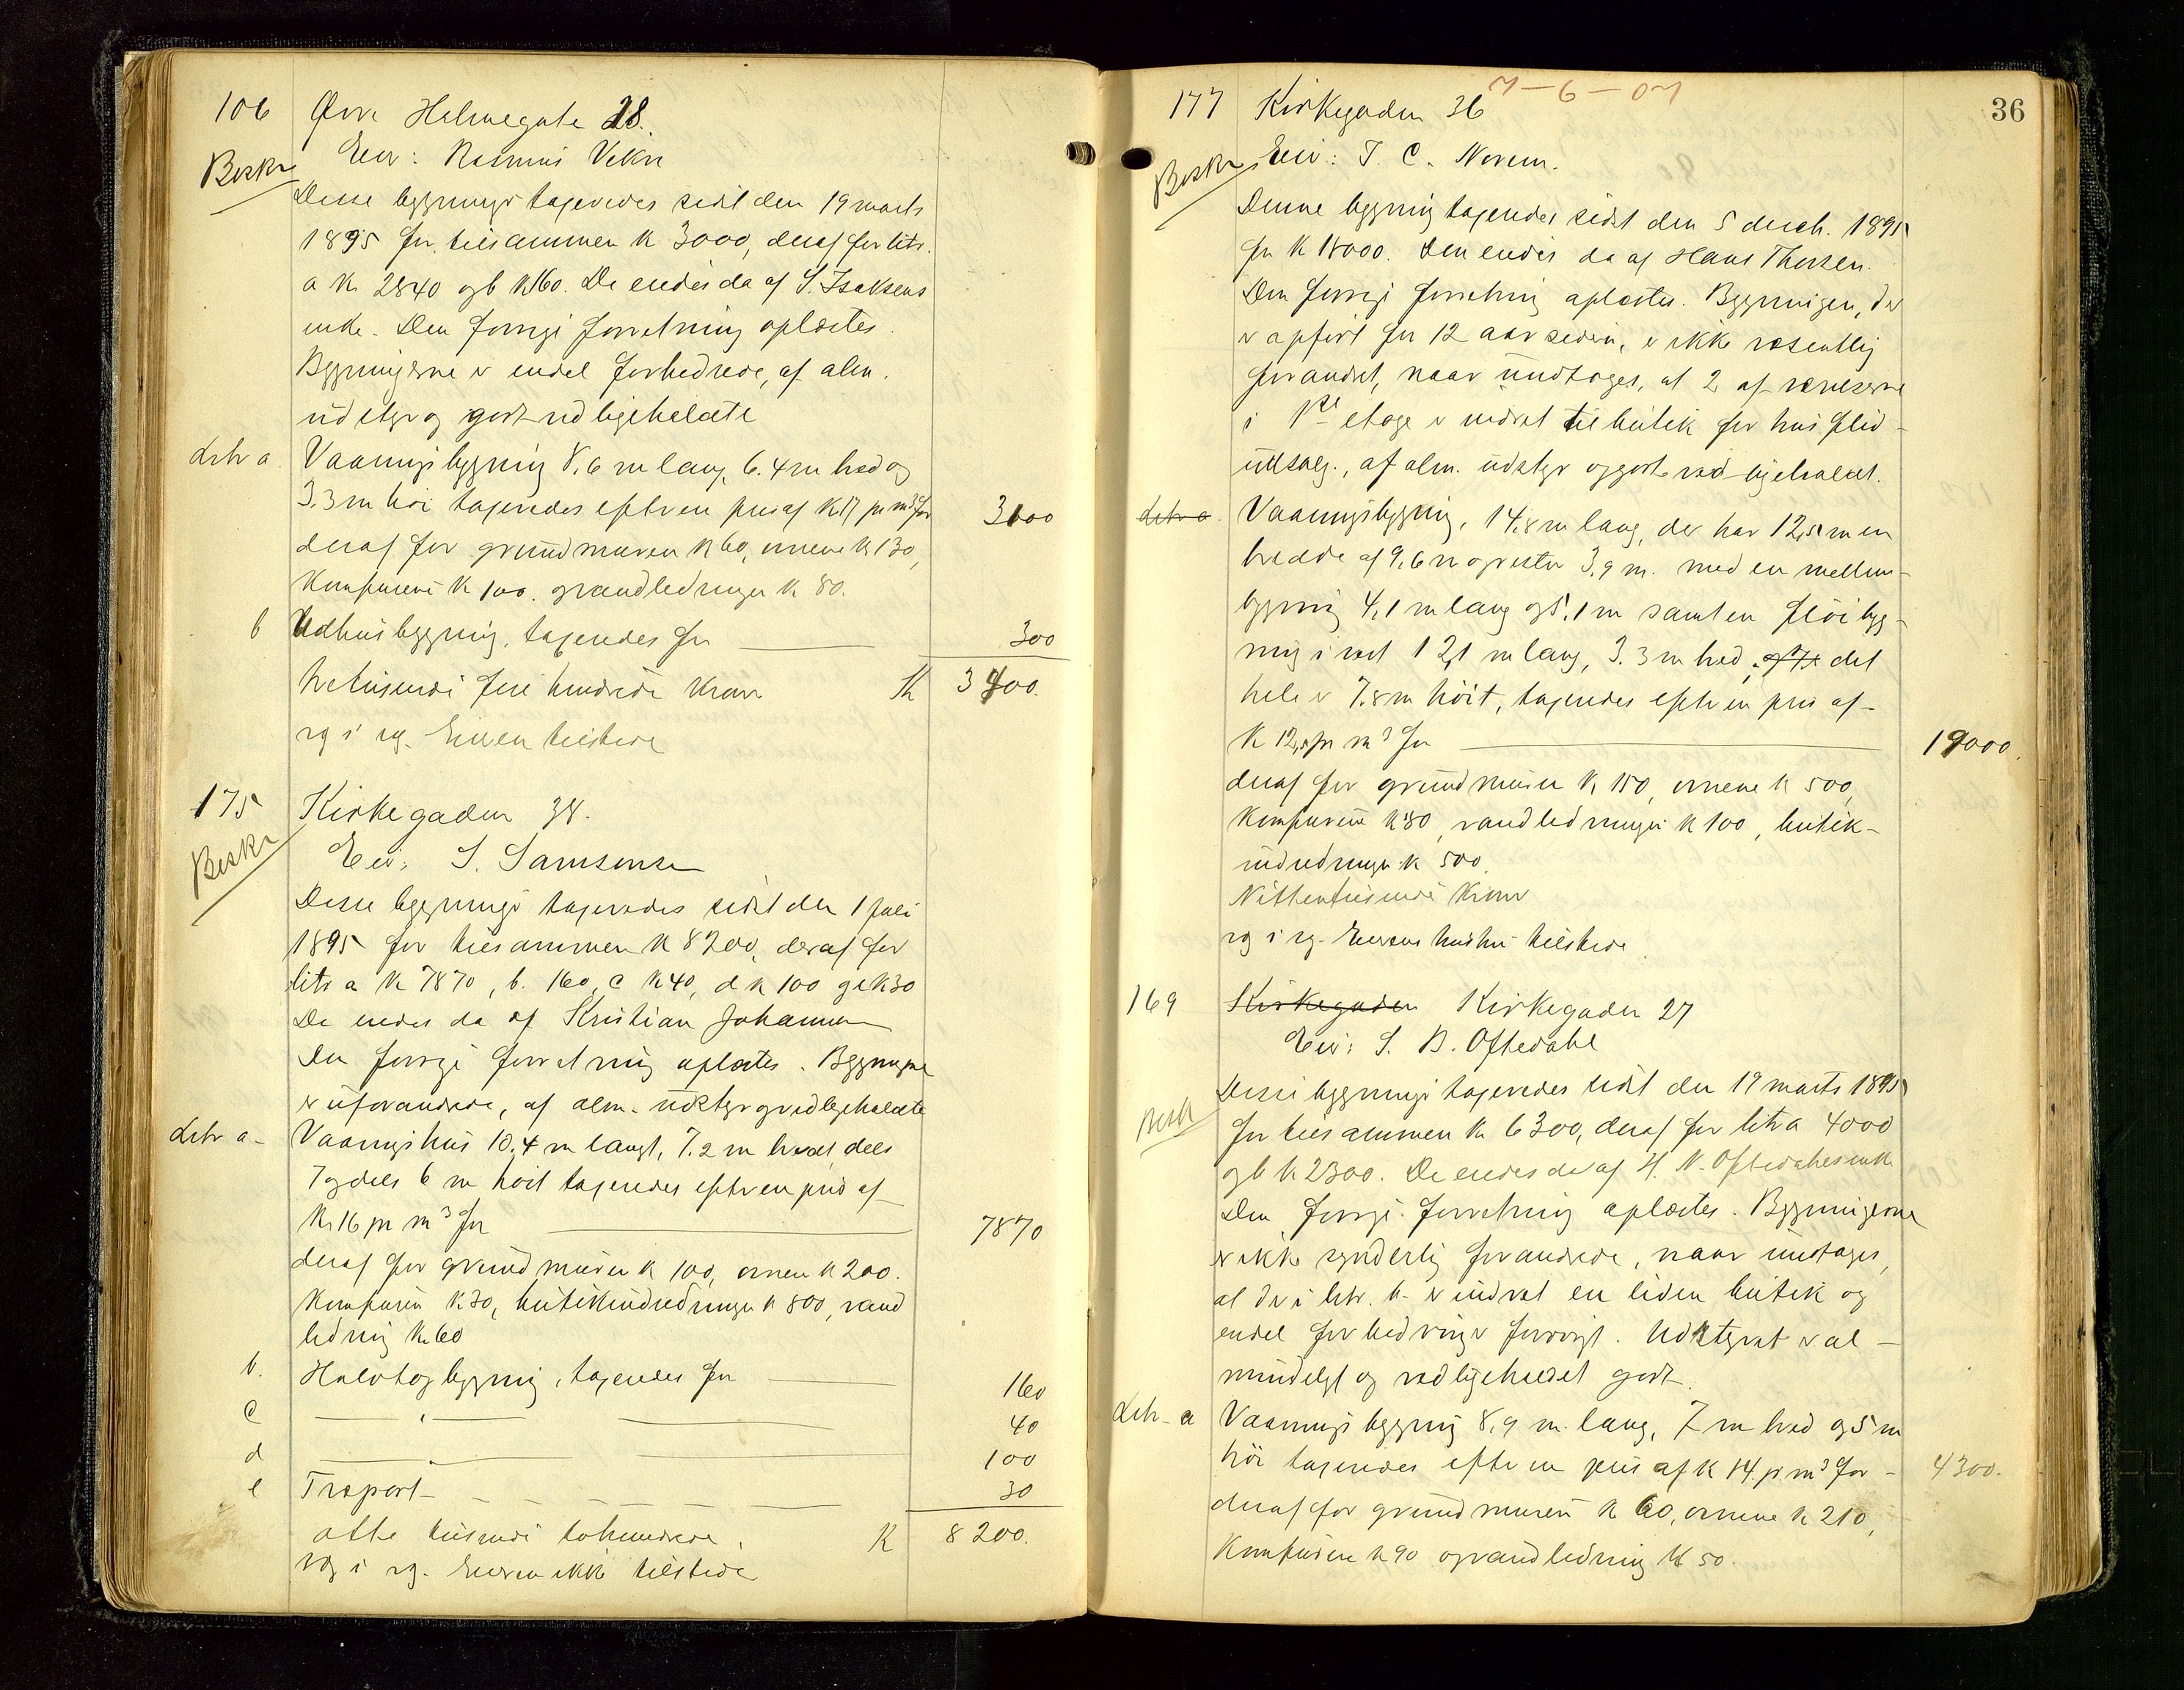 106 Øvre Holmegate 28.
Eier: Rasmus Vikre
Beskr
Disse bygninger taxeredes sidst den 19 marts
1895 for tilsammen K 3000, deraf for litr.
a K. 2840 og b K 160. De eiedes da af S. Isaksens
enke. Den forrige forretning oplæstes.
Bygningerne er endel forbedrede, af alm.
udstyr og godt vedligeholdte
Litr a. Vaaningsbygning 8,6 m lang, 6.4 m bred og
3.3 m høi taxeredes efter en pris af K 17 pr m³ for 3100
deraf for grundmuren K 60, ovnene K 130,
komfurene K 100. vandledningen K 80.
b Udhusbygning, taxeredes for 300
tretusende fire hundrede kroner K 3400.
rg i rg. Eieren tilstede
175 Kirkegaden 38.
Beskr
Eier: S. Samsonsen
Disse bygninger taxeredes sidst den 1 juli
1895 for tilsammen K 8200, deraf for
litr a K 7870, b. 160, c K 40, d K 100 og e K 30
De eiedes da af Kristian Johannesen
Den forrige forretning oplæstes. Bygningerne
er uforandrede, af alm. udstyr og vedligeholdte
Litr a. Vaaningshus 10,4 m langt, 7.2 m bredt, dels
7 og dels 6 m høit taxeredes efter en pris af
Kr 16 pr m³ for 7870
deraf for grundmuren K 100, ovnen K 200.
Komfuren K 30, butikindredningen K 800, vand
ledning K. 60
b. Halvtagbygning, taxeredes for 160
c — " — 40
d — " — 100
e Traport 30
otte tusende tohundrede. K 8200.
rg i rg. Eieren ikke tilstede
36
7-6-07
177 Kirkegaden 36
Beskr
Eier: T. C. Norem.
Denne bygning taxeredes sidst den 5 decb. 1895
for K 18000. Den eiedes da af Hans Thorsen.
Den forrige forretning oplæstes. Bygningen, der
er opført for 12 aar siden, er ikke væsentlig
forandret, naar undtages, at 2 af værelserne
i 1ste etage er indret til butik for husflid-
udsalg., af alm. udstyr og godt vedligeholdt.
Litr a Vaaningsbygning, 14,8 m lang, der har 12,5 m en
bredde af 9,6 m og resten 3,9 m. med en mellem-
bygning 4,1 m lang og 5,1 m samt en fløibyg-
ning i vest 12,1 m lang, 3.3 m bred, det
hele er 7.8 m høit, taxeredes efter en pris af
K 12,50 pr m³ for 19000.
deraf for grundmuren K 150, ovnene K 500,
Komfurene K 80, vandledningen K 100, butik-
indredningen K 500.
Nittentusende kroner
rg i rg. Eierens hustru tilstede.
169 Kirkegaden Kirkegaden 27
Eier: S. B. Oftedahl
Beskr
Disse bygninger taxeredes sidst den 19 marts 1895
for tilsammen K 6300, deraf for litr a 4000
og b K 2300. De eiedes da af H. N. Oftedahls enke
Den forrige forretning oplæstes. Bygningerne
er ikke synderlig forandrede, naar undtages,
at der i litr. b. er indret en liden butik og
endel forbedringer forøvrigt. Udstyret er al-
mindeligt og vedligeholdet godt.
Litr. a Vaaningsbygning 8,9 m. lang, 7 m bred og 5 m
høi taxeredes efter en pris af K 14. pr m³ for 4300.
deraf for grundmuren K 60, ovnene K 210,
Komfuren K 90 og vandledning K 50.